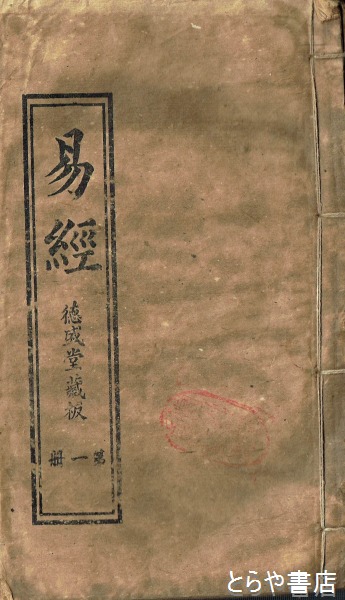 易經
德成堂藏板
第一册
とらや書店